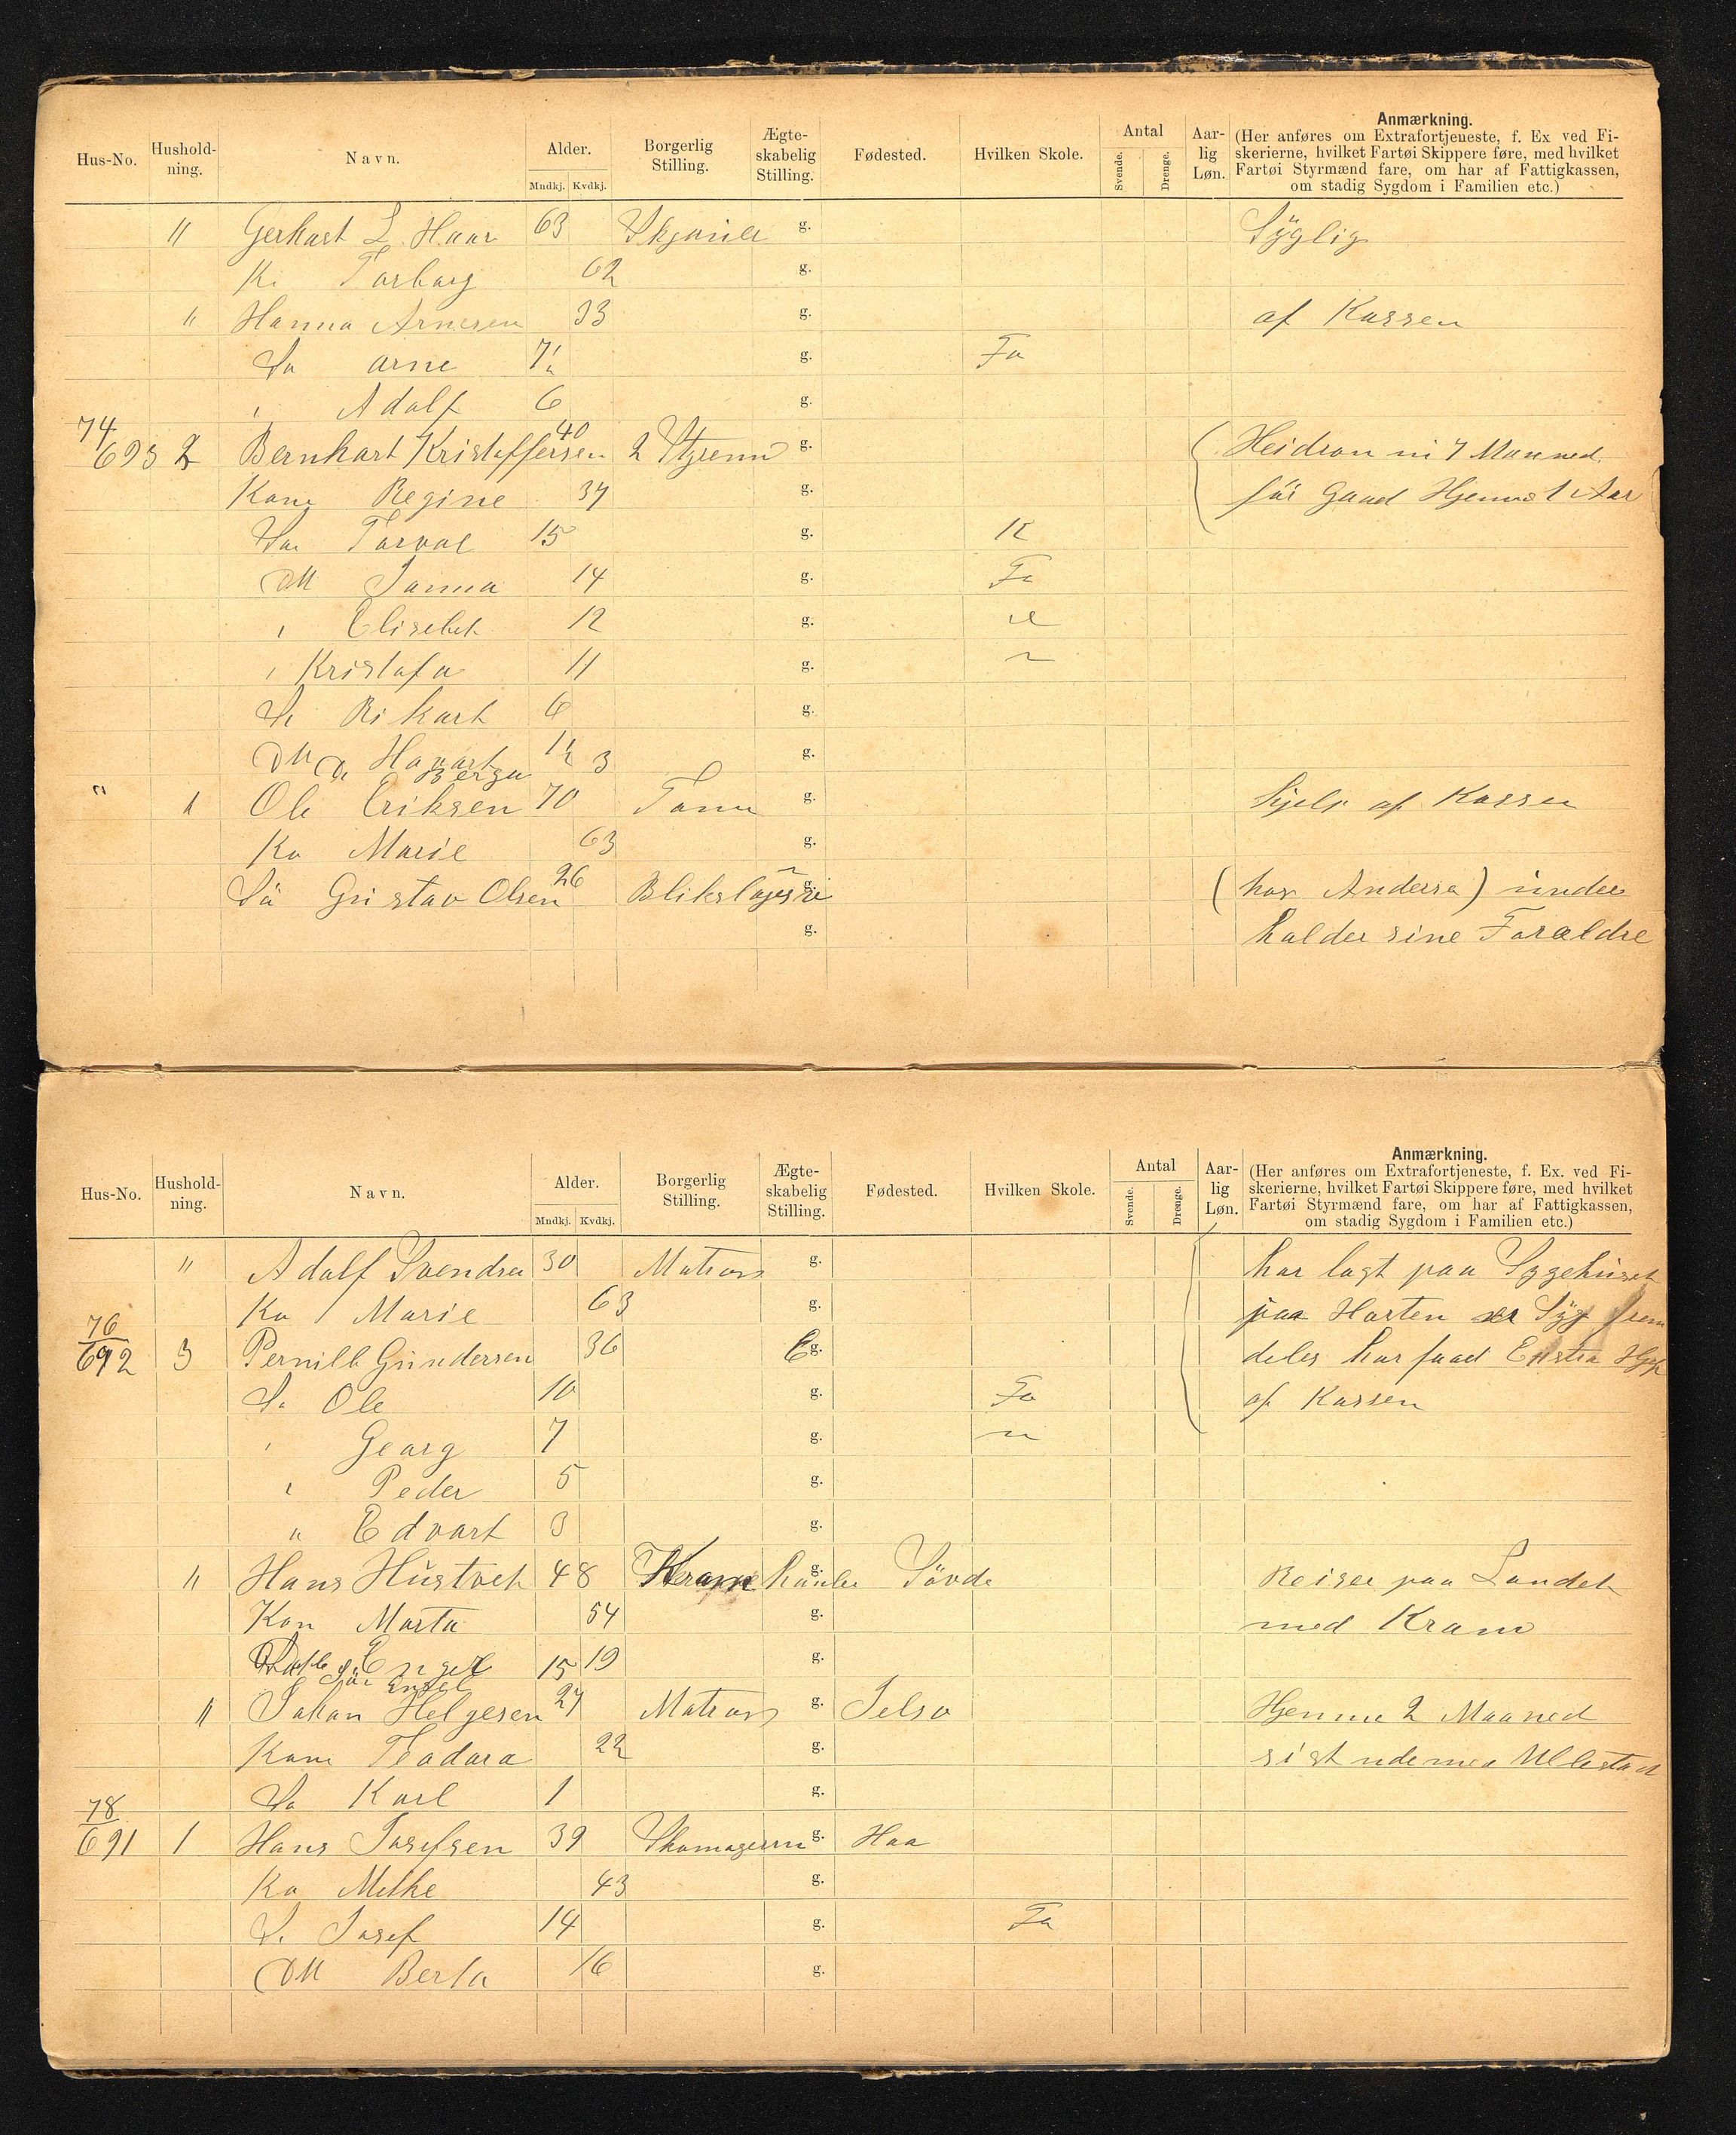 Hus-No. Hushold-ning. Navn. Alder. Mndkj. Kvdkj. Borgerlig Stilling. Ægte-skabelig Stilling. Fødested. Hvilken Skole. Antal Svende. Drenge. Aar-lig Løn. Anmærkning.
(Her anføres om Extrafortjeneste, f. Ex ved Fi-
skerierne, hvilket Fartøi Skippere føre, med hvilket
Fartøi Styrmænd fare, om har af Fattigkassen,
om stadig Sygdom i Familien etc.)
" Gerhart L. Haar 63 g. Syglig
K. Torborg 62 g.
" Hanna Arnesen 33 g. af Kassen
Sø Arne 7½ g. Fa
" Adolf 6 g.
74
693 2 Bernhart Kristoffersen 40 2 Styrem g. 7 Maaned
Kone Regine 37 g. faar Hjemme 1 Aar
Sø Torval 15 g. K
DM Janna 14 g. Fa
" Elisebet 12 g. "
" Kristofa 11 g. "
Sø Rikart 6 g.
Havart 1½ 3 g.
Berga
" 1 Ole Eriksen 70 g. Hjelp af Kassen
Ko Marie 63 g.
Sø Gustav Olsen 26 Blikslager g. (hos Anderse) under
g. holder sine Forældre
Hus-No. Hushold-ning. Navn. Alder. Mndkj. Kvdkj. Borgerlig Stilling. Ægte-skabelig Stilling. Fødested. Hvilken Skole. Antal Svende. Drenge. Aar-lig Løn. Anmærkning.
(Her anføres om Extrafortjeneste, f. Ex. ved Fi-
skerierne, hvilket Fartøi Skippere føre, med hvilket
Fartøi Styrmænd fare, om har af Fattigkassen,
om stadig Sygdom i Familien etc.)
" Adolf Svendsen 30 Matros g. har lagt paa Sygehuset
Ko Marie 63 g. paa Horten er Syg frem
76
692 3 Pernille Gundersen 36 E g. deles har faaet Extra Hjelp
Sø Ole 10 g. Fa af Kassen
" Georg 7 g. "
" Peder 5 g.
" Edvart 3 g.
" Hans Hustvet 48 Kram handler g. Søvde Reiser paa Landet
Kon Marta 54 g. med Kram
Engel 15 19 g.
Søn Engel
" Johan Helgesen 27 Matros g. Jelsa Hjemme 2 Maaned
Kone Teodora 22 g. sist ude med Ullestad
Sø Karl 1 g.
78
691 1 Hans Josefsen 39 Skomagerm g. Haa
Ko Melke 43 g.
Sø Josef 14 g. Fa
DM Berta 16 g.